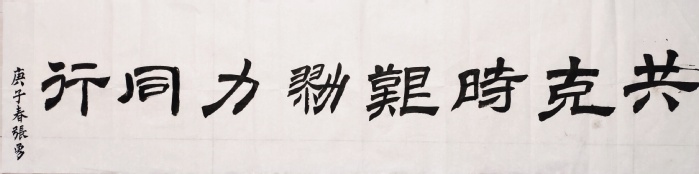 共克時艱勠力同行
庚子春張勇